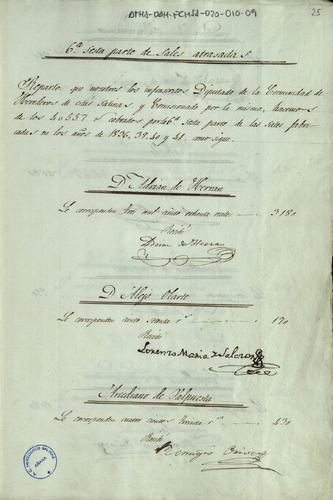 ATHA-DAH-FCHSA-020-010-09
25
6.ª sexta parte de Sales atrasadas
Reparto que nosotros los infrascritos Diputado de la Comunidad de
Herederos de estas Salinas, y Comisionado por la misma, hacemos
de los 40557 rˢ cobrados por la 6.ª sexta parte de las Sales fabri-
cadas en los años de 1838, 39, 40 y 41 como sigue.
Dⁿ Adrian de Herran
Le corresponden tres mil ciento ochenta reales 3180
Recibí
Adrian de Herran
D. Alejo Olarte
Le corresponden ciento setenta rˢ 170
Recibí
Lorenzo Maria de Salazar
Arcediano de Valpuesta
Le corresponden cuatro cientos treinta rˢ 430
Recibí
Remigio